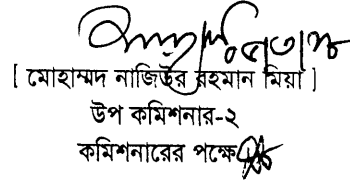 [ মোহাম্মদ নাজিউর রহমান মিয়া ]
উপ কমিশনার-২
কমিশনারের পক্ষে